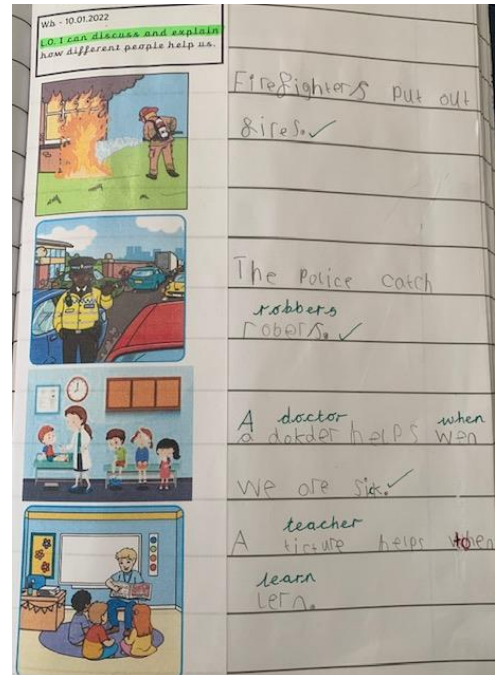 Wb - 10.01.2022
L.O. I can discuss and explain
how different people help us.
Firefighters put out
fires. ✓
The police catch
robbers
robers. ✓
A doctor when
a dokder helps wen
we are sick. ✓
teacher
A ticture helps to
learn
lern.